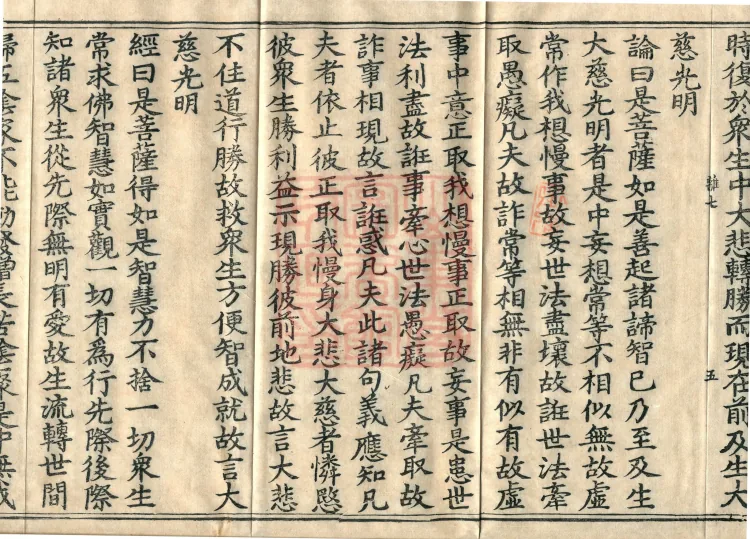 時復於衆生中大悲轉勝而現在前及生大
雜七
五
慈光明
論曰是菩薩如是善起諸諦智已乃至及生
大慈光明者是中妄想常等不相似無故虛
常作我想慢事故妄世法盡壞故誑世法牽
取愚癡凡夫故詐常等相無非有似有故虛
事中意正取我想慢事正取故妄事是患世
法利盡故誑事牽心世法愚癡凡夫牽取故
詐事相現故言誑惑凡夫此諸句義應知凡
夫者依止彼正取我慢身大悲大慈者憐愍
彼衆生勝利益示現勝彼前地悲故言大悲
不住道行勝故救衆生方便智成就故言大
慈光明
經曰是菩薩得如是智慧力不捨一切衆生
常求佛智慧如實觀一切有爲行先際後際
知諸衆生從先際無明有愛故生流轉世間
歸五陰
不能動發增長苦陰聚是中無我